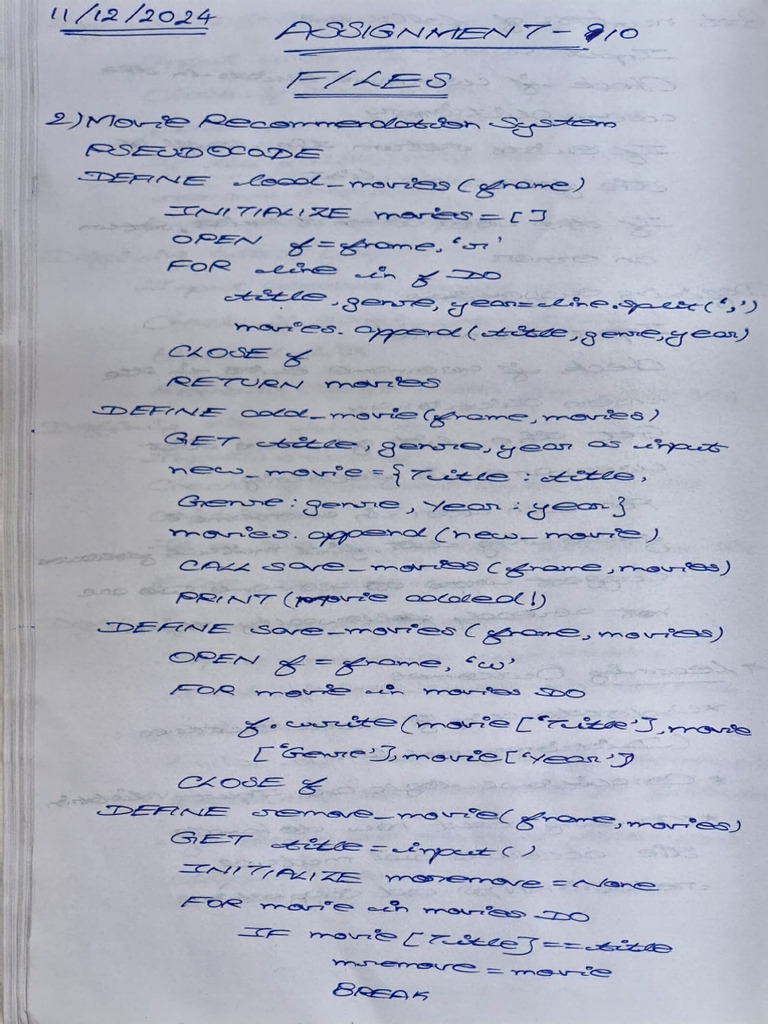 11/12/2024
ASSIGNMENT-10
FILES
2) Movie Recommendation System
PSEUDOCODE
DEFINE load_movies(fname)
INITIALIZE movies = []
OPEN f = fname, 'r'
FOR line in f DO
title, genre, year=line.split(',')
movies.append(title, genre, year)
CLOSE f
RETURN movies
DEFINE add_movie(fname, movies)
GET title, genre, year as input
new_movie = {Title : title,
Genre : genre, Year : year}
movies.append(new_movie)
CALL save_movies(fname, movies)
PRINT (movie added!)
DEFINE save_movies(fname, movies)
OPEN f = fname, 'w'
FOR movie in movies DO
f.write(movie['Title'], movie
['Genre'], movie['Year'])
CLOSE f
DEFINE remove_movie(fname, movies)
GET title = input()
INITIALIZE moremove = None
FOR movie in movies DO
IF movie[Title] == title
mremove = movie
BREAK